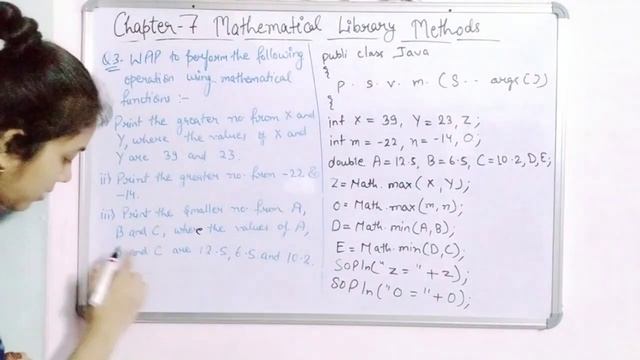 Chapter-7 Mathematical Library Methods
Q.3. WAP to perform the following
operation using mathematical
functions :-
i) Print the greater no from X and
Y, where the values of X and
Y are 39 and 23.
ii) Print the greater no. from -22 &
-14.
iii) Print the smaller no from A,
B and C, where the values of A,
and C are 12.5, 6.5 and 10.2.
publi class Java
{
p. s. v. m. (S.. args[])
{
int X = 39, Y = 23, Z;
int m = -22, n = -14, O;
double A = 12.5, B = 6.5, C = 10.2, D, E;
Z = Math.max(X, Y);
O = Math.max(m, n);
D = Math.min(A, B);
E = Math.min(D, C);
SOPln("Z = " + Z);
SOPln("O = " + O);